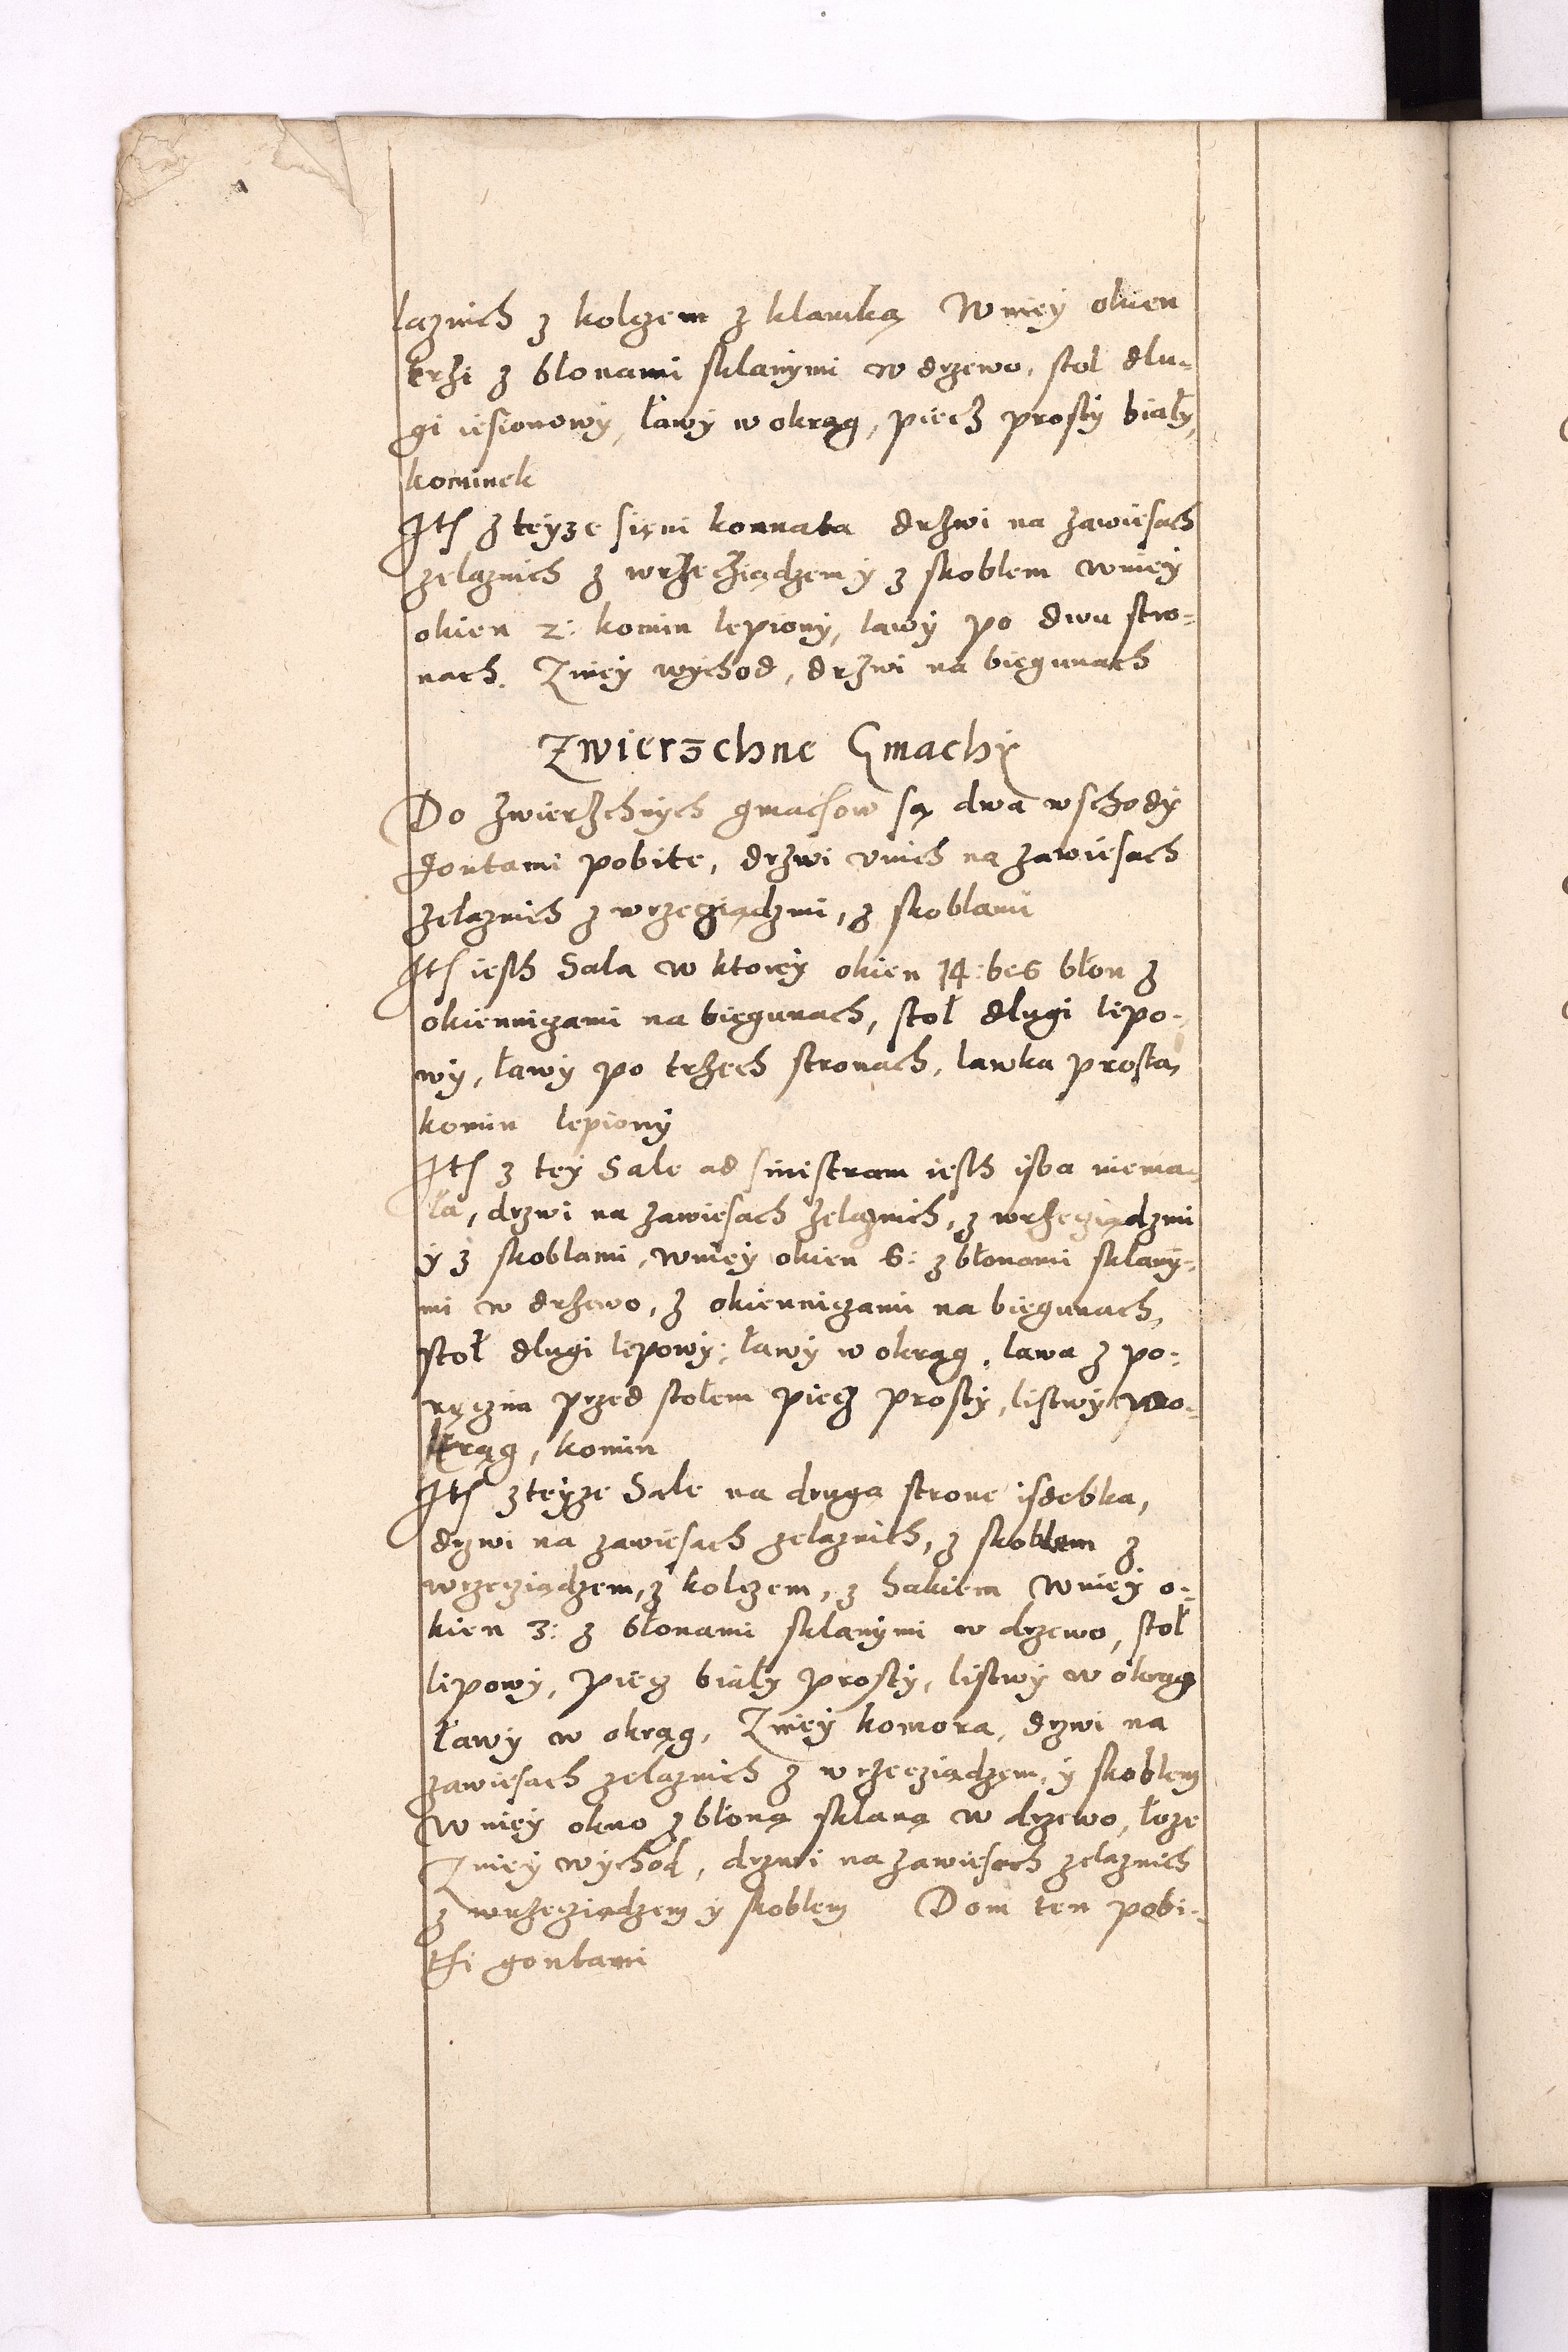 laznich z kolczem z klamką W niey okien
trzi z błonami sklanymi w drzewo, stol dlu-
gi iesionowy, ławy w okrąg, piecz prosty biały,
kominek
It[em] z teyze sieni komnata drzwi na zawiesach
zelaznich z wrzecziądzem y z skoblem w niey
okien 2: komin lepiony, lawy po dwu stro-
nach. Z niey wychod, drzwi na biegunach
Zwierzchne Gmachy
Do zwierzchnych gmachow są dwa wschody
gontami pobite, drzwi v nich na zawiesach
zelaznich z wrzecziądzmi, z skoblami
It[em] iesth Sala w ktorey okien 14: bes błon z
okiennizami na biegunach, stoł dlugi lipo-
wy, ławy po trzech stronach, lawka prosta,
komin lepiony
It[em] z tey Sale ad sinistram iesth isba niema-
ła, drzwi na zawiesach zelaznich, z wrzecziądzmi
y z skoblami, w niey okien 6: z błonami sklany-
mi w drzewo, z okiennizami na biegunach,
stoł dlugi lipowy, ławy w okrąg, lawa z po-
ręczia przed stołem piecz prosty, listwy wo-
krąg, komin
It[em] z teyze Sale na druga strone isdebka,
drzwi na zawiesach zelaznich, z skoblem z
wrzecziądzem, z kolczem, z hakiem W niey o-
kien 3: z błonami sklanymi w drzewo, stoł
lipowy, piecz biały prosty, listwy w okrąg
ławy w okrąg, Z niey komora, drzwi na
zawiesach zelaznich z wrzecziądzem, y skoblem
W niey okno z błoną sklaną w drzewo, łoże
Z niey wychod, drzwi na zawiesach zelaznich
z wrzecziądzem y skoblem Dom ten pobi-
thi gontami